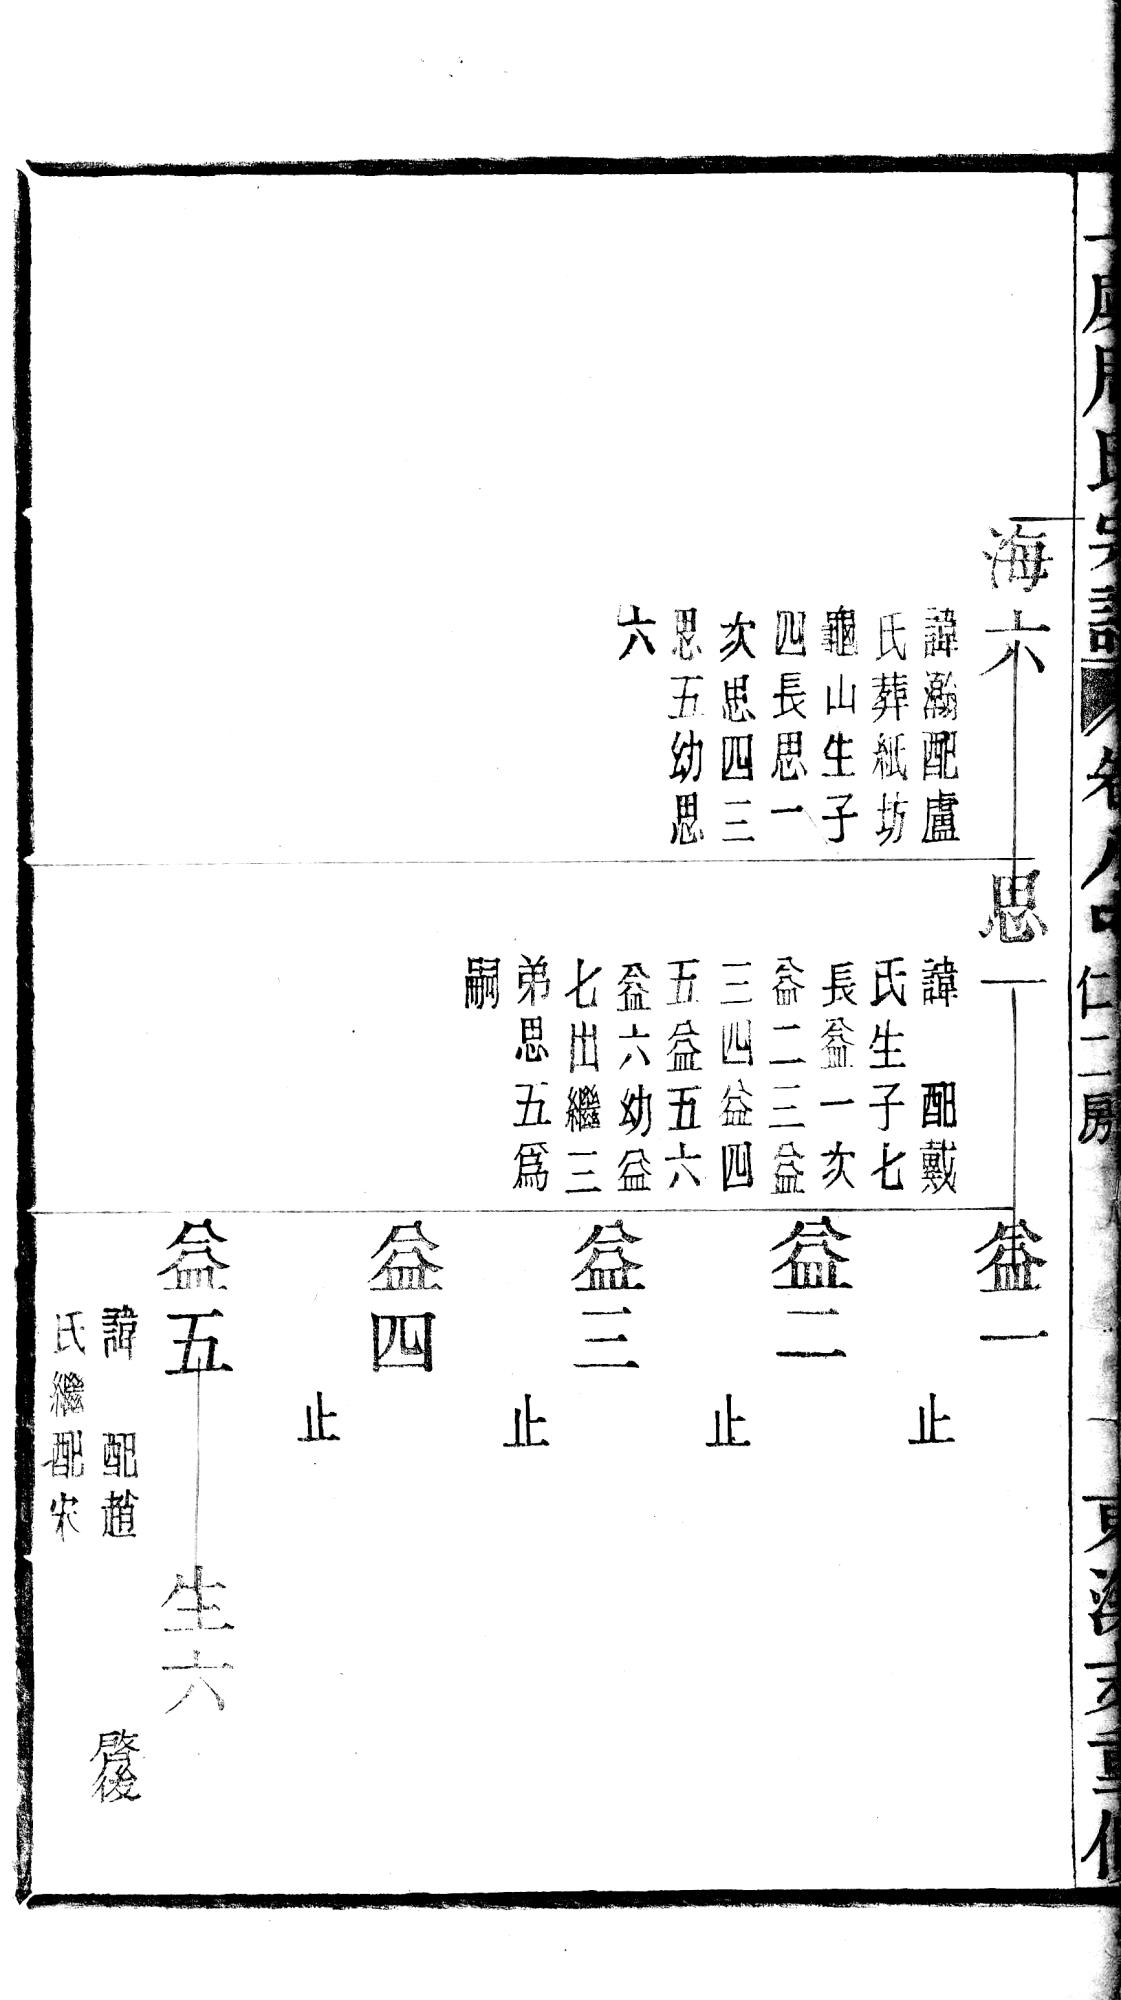 仁二房
海六
諱瀚配盧
氏葬紙坊
龜山生子
四長思一
次思四三
思五幼思
六
思一
諱　配戴
氏生子七
長益一次
益二三益
三四益四
五益五六
益六幼益
七出繼三
弟思五爲
嗣
益一
止
益二
止
益三
止
益四
止
益五
諱　配趙
氏繼配宋
生六
啓後